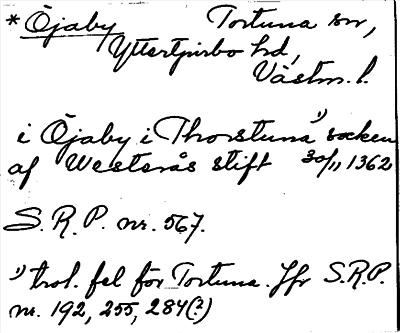 *Öjaby Tortuna sn,
Yttertjurbo hd,
Västm. l.
i Öjaby i Thorstuna¹⁾ socken
af Westerås stift 30/11 1362
S.R.P. nr. 567.
¹⁾ trol. fel för Tortuna. Jfr S.R.P.
nr. 192, 255, 284(?)